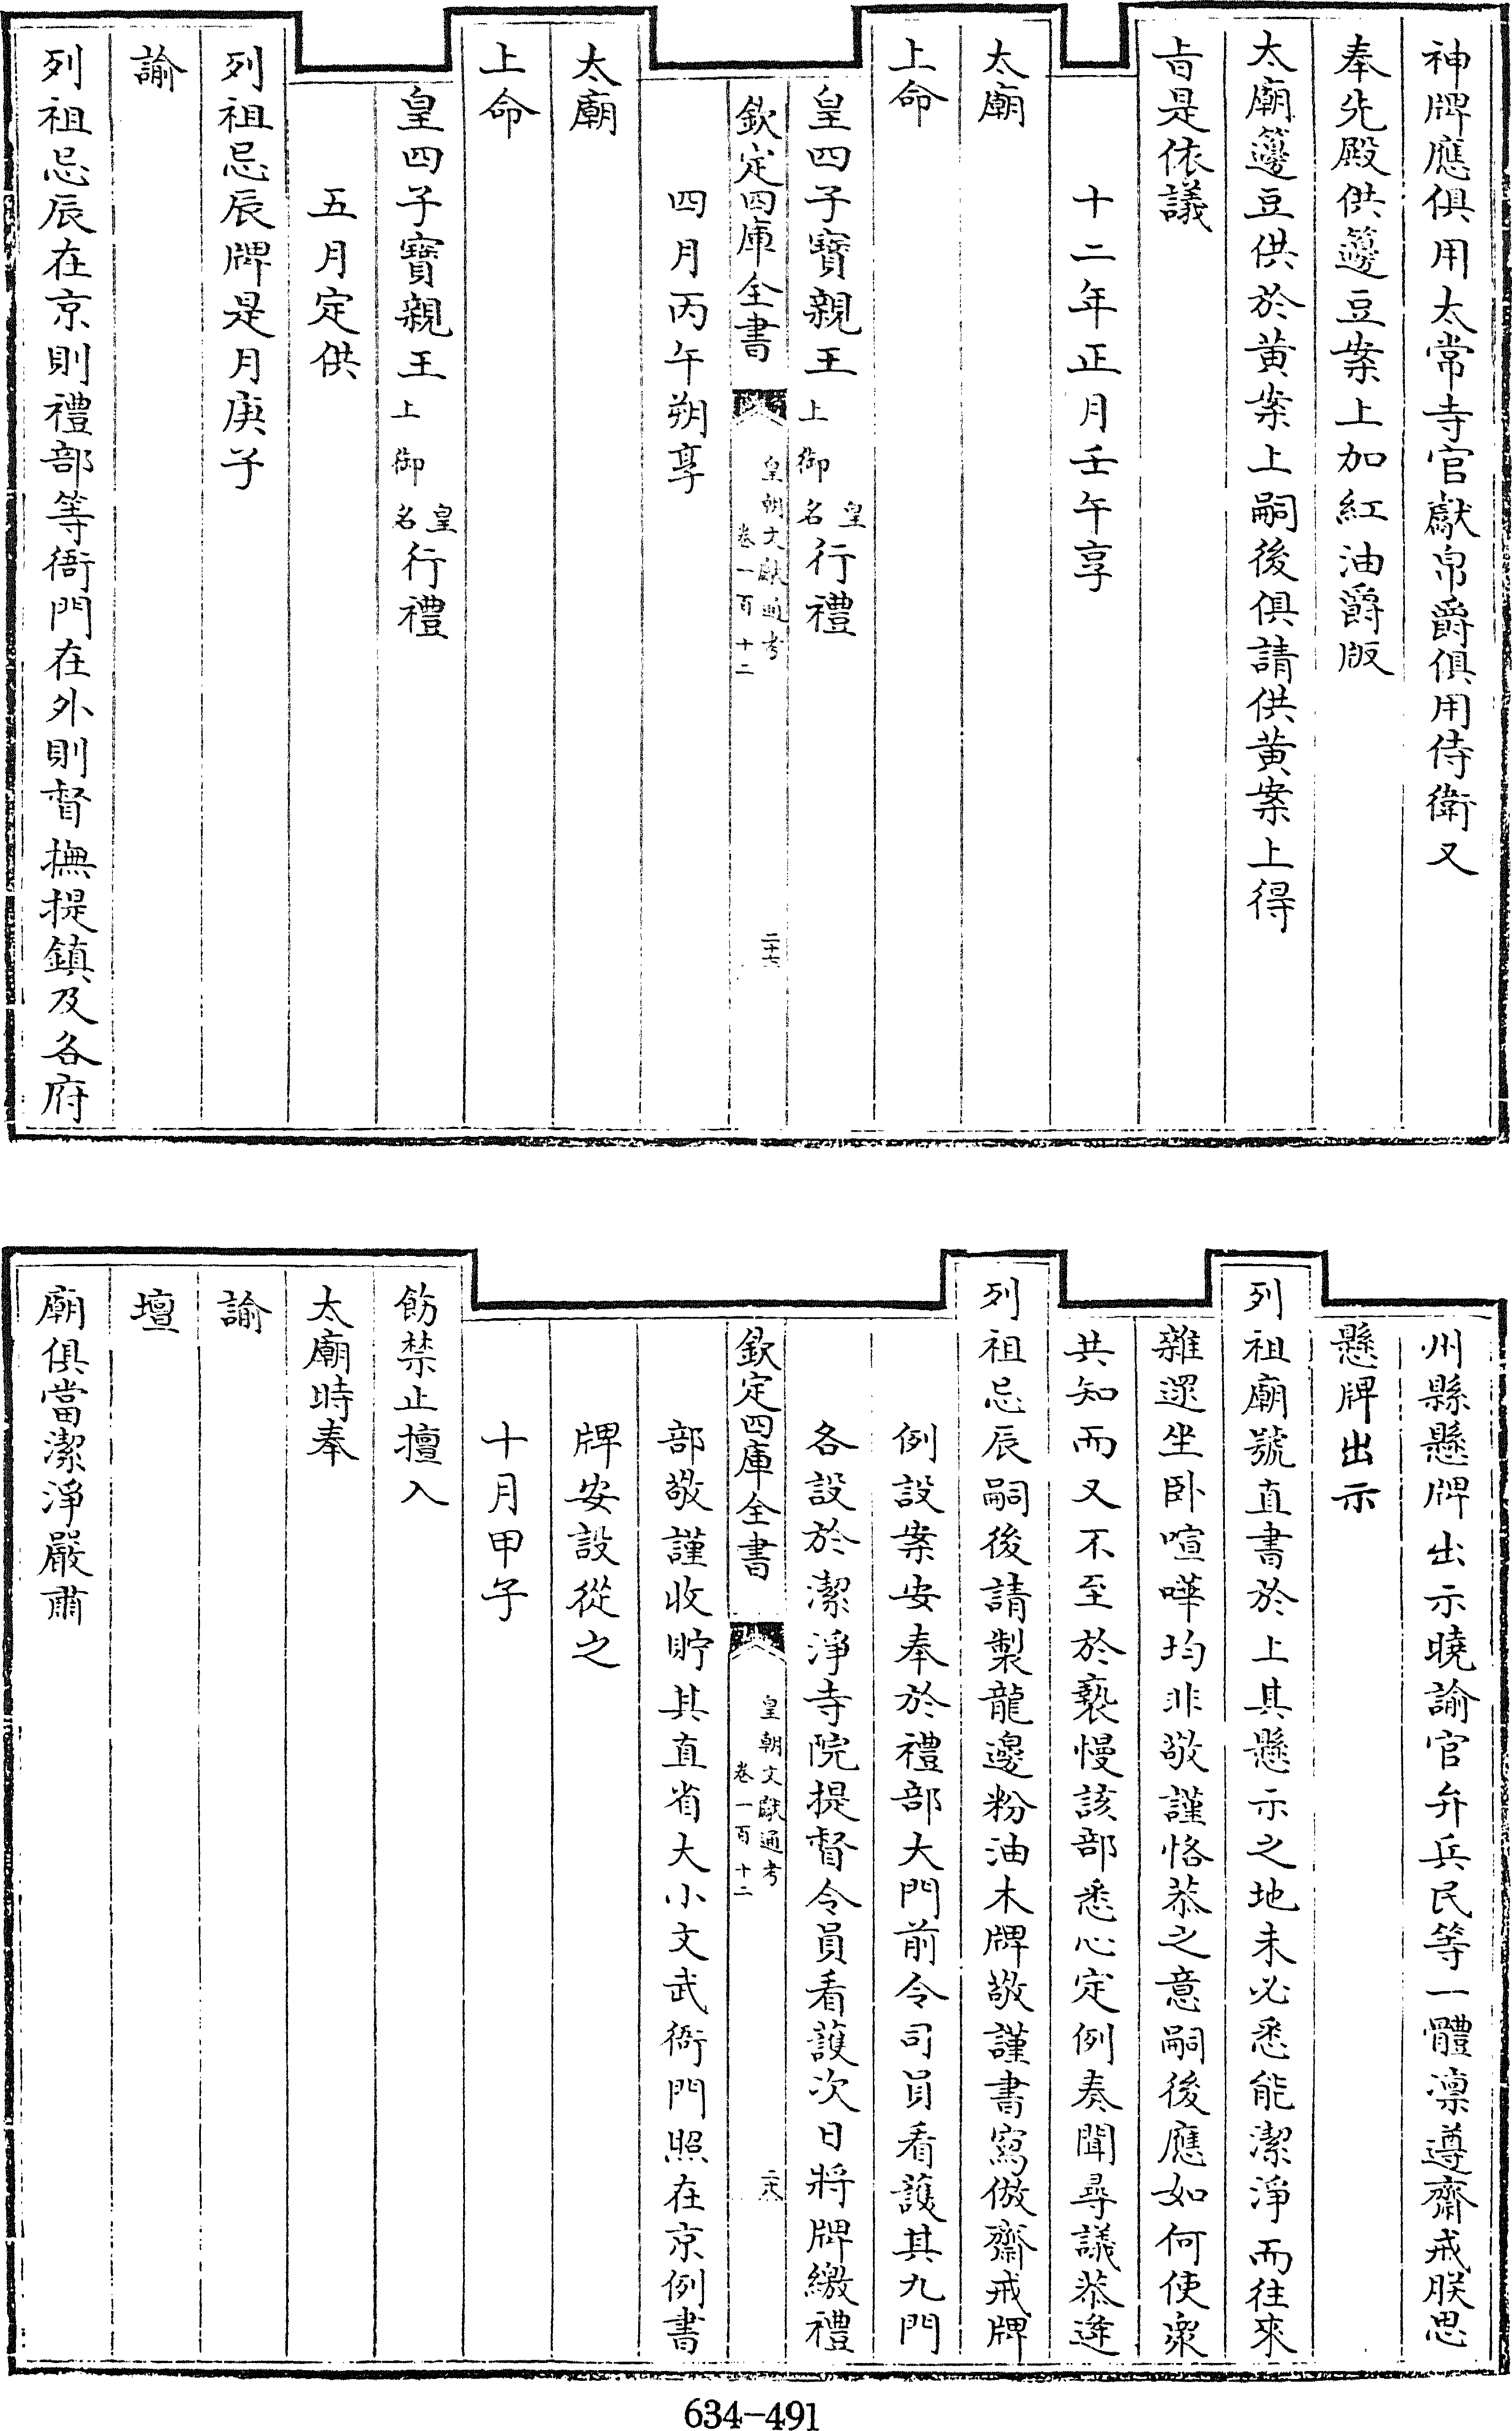 神牌應俱用太常寺官獻帛爵俱用侍衛又
奉先殿供籩豆案上加紅油爵版
太廟籩豆供於黄案上嗣後俱請供黄案上得
旨是依議
十二年正月壬午享
太廟
上命
皇四子寶親王上御皇名行禮
欽定四庫全書
皇朝文獻通考
卷一百十二
四月丙午朔享
太廟
上命
皇四子寶親王上御皇名行禮
五月定供
列祖忌辰牌是月庚子
諭
列祖忌辰在京則禮部等衙門在外則督撫提鎮及各府
州縣懸牌出示曉諭官弁兵民等一體凛遵齋戒朕思
懸牌出示
列祖廟號直書於上其懸示之地未必悉能潔淨而往來
雜遝坐卧喧嘩均非敬謹恪恭之意嗣後應如何使衆
共知而又不至於褻慢該部悉心定例奏聞尋議恭逢
列祖忌辰嗣後請製龍邊粉油木牌敬謹書寫倣齋戒牌
例設案安奉於禮部大門前令司員看護其九門
各設於潔淨寺院提督令員看護次日將牌繳禮
欽定四庫全書
皇朝文獻通考
卷一百十二
部敬謹收貯其直省大小文武衙門照在京例書
牌安設從之
十月甲子
飭禁止擅入
太廟時奉
諭
壇
廟俱當潔淨嚴肅
634-491